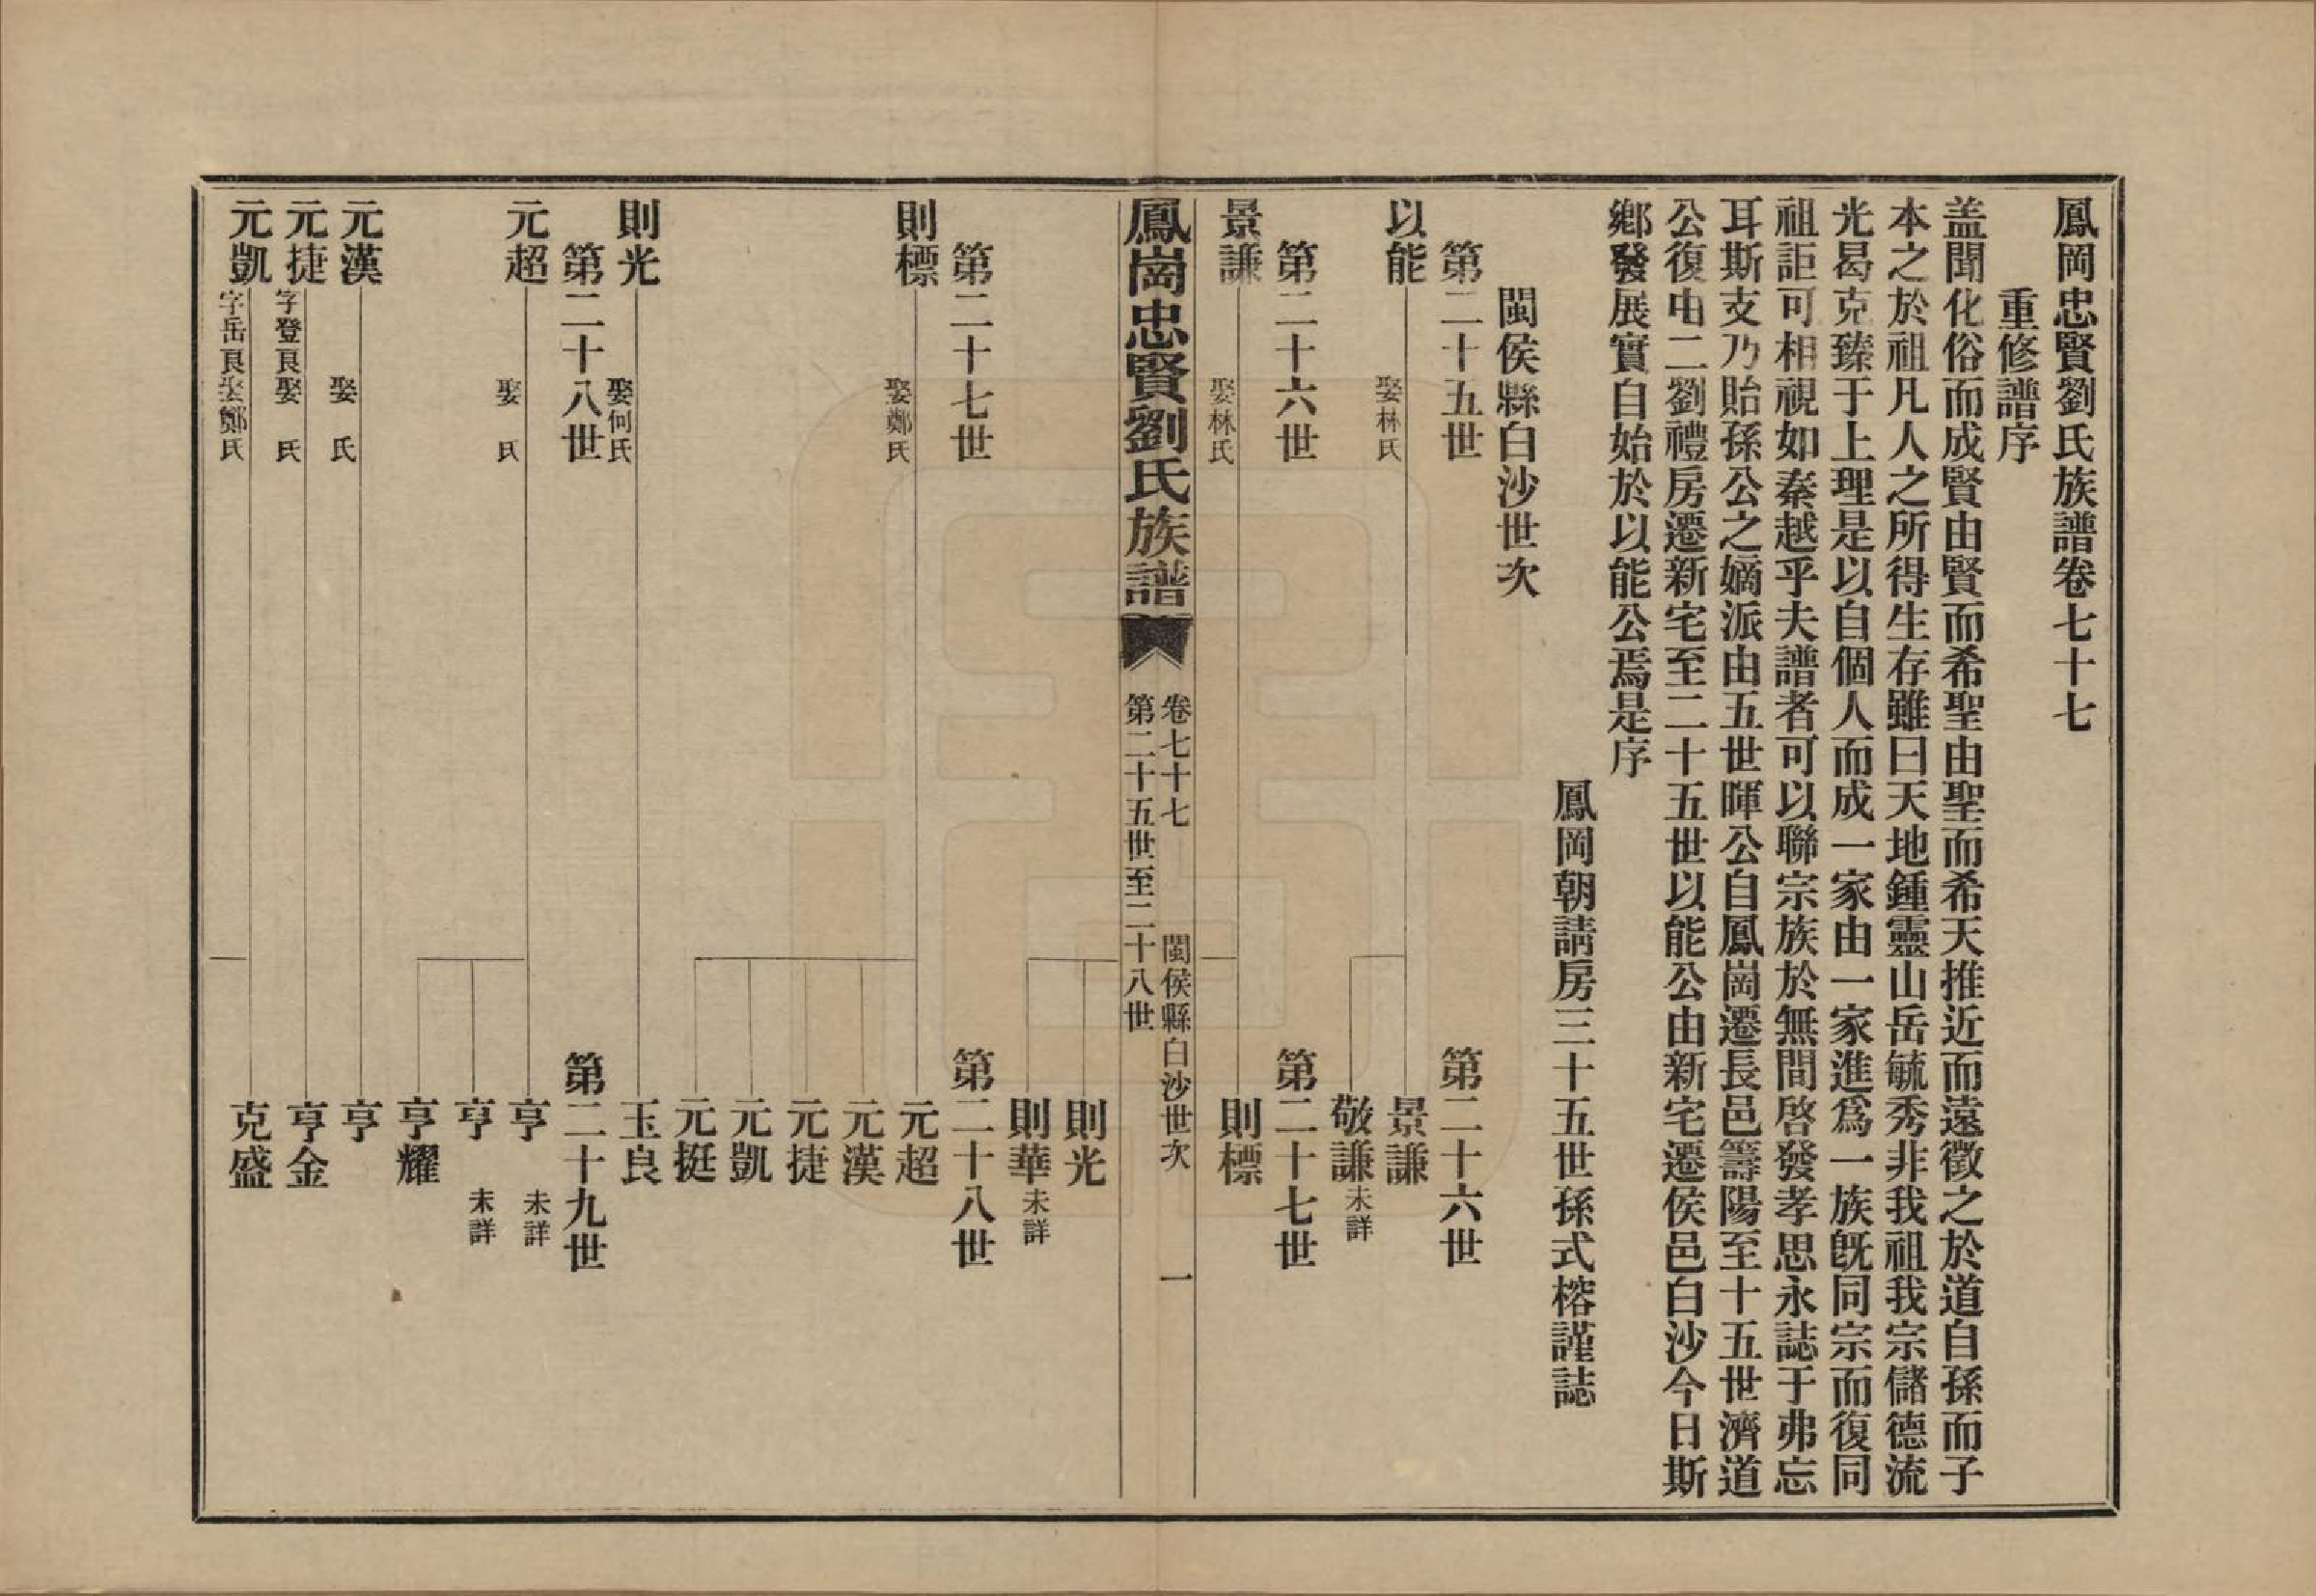 鳳岡忠賢劉氏族譜卷七十七
重修譜序
盖聞化俗而成賢由賢而希聖由聖而希天推近而遠徵之於道自孫而子
本之於祖凡人之所得生存雖曰天地鍾靈山岳毓秀非我祖我宗儲德流
光曷克臻于上理是以自個人而成一家由一家進爲一族旣同宗而復同
祖詎可相視如秦越乎夫譜者可以聯宗族於無間啓發孝思永誌于弗忘
耳斯支乃貽孫公之嫡派由五世暉公自鳳崗遷長邑籌陽至十五世濟道
公復由二劉禮房遷新宅至二十五世以能公由新宅遷侯邑白沙今日斯
鄉發展實自始於以能公焉是序
鳳岡朝請房三十五世孫式榕謹誌
閩侯縣白沙世次
第二十五世 第二十六世
以能 娶林氏 景謙
敬謙 未詳
第二十六世 第二十七世
景謙 娶林氏 則標
鳳崗忠賢劉氏族譜
卷七十七 閩侯縣白沙世次 一
第二十五世至二十八世
則光
則華 未詳
第二十七世 第二十八世
則標 娶鄭氏 元超
元漢
元捷
元凱
元挺
則光 娶何氏 玉良
第二十八世 第二十九世
元超 娶 氏 亨 未詳
亨 未詳
亨耀
元漢 娶 氏 亨
元捷 字登良娶 氏 亨金
元凱 字岳良娶鄭氏 克盛